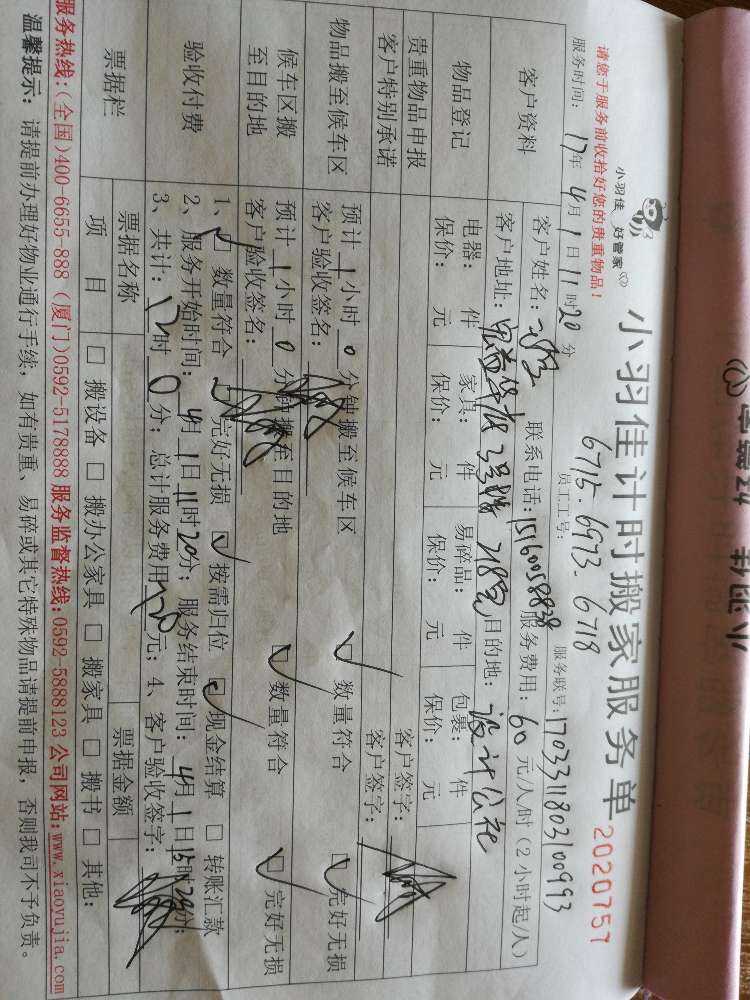 小羽佳 好管家
小羽佳计时搬家服务单
2020757
请您于服务前收拾好您的贵重物品!
6715-6973-6718
服务时间: 17年 4月 1日 11时 20分
员工工号:
服务联号: 1703311803100993
客户资料
客户姓名:
联系电话: 15160058838
服务费用: 60 元/人/时(2小时起/人)
客户地址:
目的地: 设计公社
物品登记
电器: 件 家具: 件 易碎品: 件 包裹: 件
保价: 元 保价: 元 保价: 元 保价: 元
贵重物品申报
客户签字:
客户特别承诺
客户签字:
物品搬至候车区
预计 1 小时 0 分钟搬至候车区
数量符合
完好无损
客户验收签名:
候车区搬至目的地
预计 1 小时 0 分钟搬至目的地
数量符合
完好无损
客户验收签名:
验收付费
1、 数量符合 完好无损 按需归位 现金结算 转账汇款
2、服务开始时间: 4月 1日 11时 20分; 服务结束时间: 4月 1日 15时 20分;
3、共计: 12时 0分; 总计服务费用 720 元; 4、客户验收签字:
票据栏
票据名称
票据金额
项目
搬设备 搬办公家具 搬家具 搬书 其他:
服务热线:(全国)400-6655-888 (厦门)0592-5178888 服务监督热线:0592-5888123 公司网站:www.xiaoyujia.com
温馨提示: 请提前办理好物业通行手续, 如有贵重、易碎或其它特殊物品请提前申报, 否则我司不予负责。